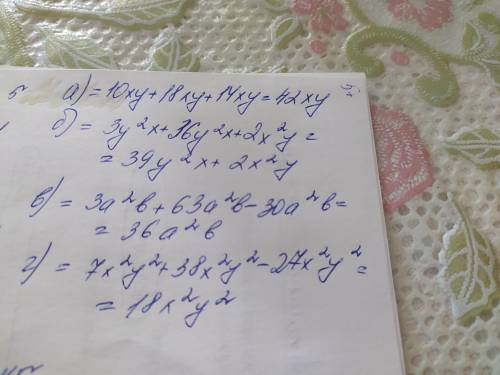 5 а) = 10xy + 18xy + 14xy = 42xy
б) = 3y²x + 36y²x + 2x²y =
= 39y²x + 2x²y
в) = 3a²b + 63a²b - 30a²b =
= 36a²b
г) = 7x²y² + 38x²y² - 27x²y² =
= 18x²y²